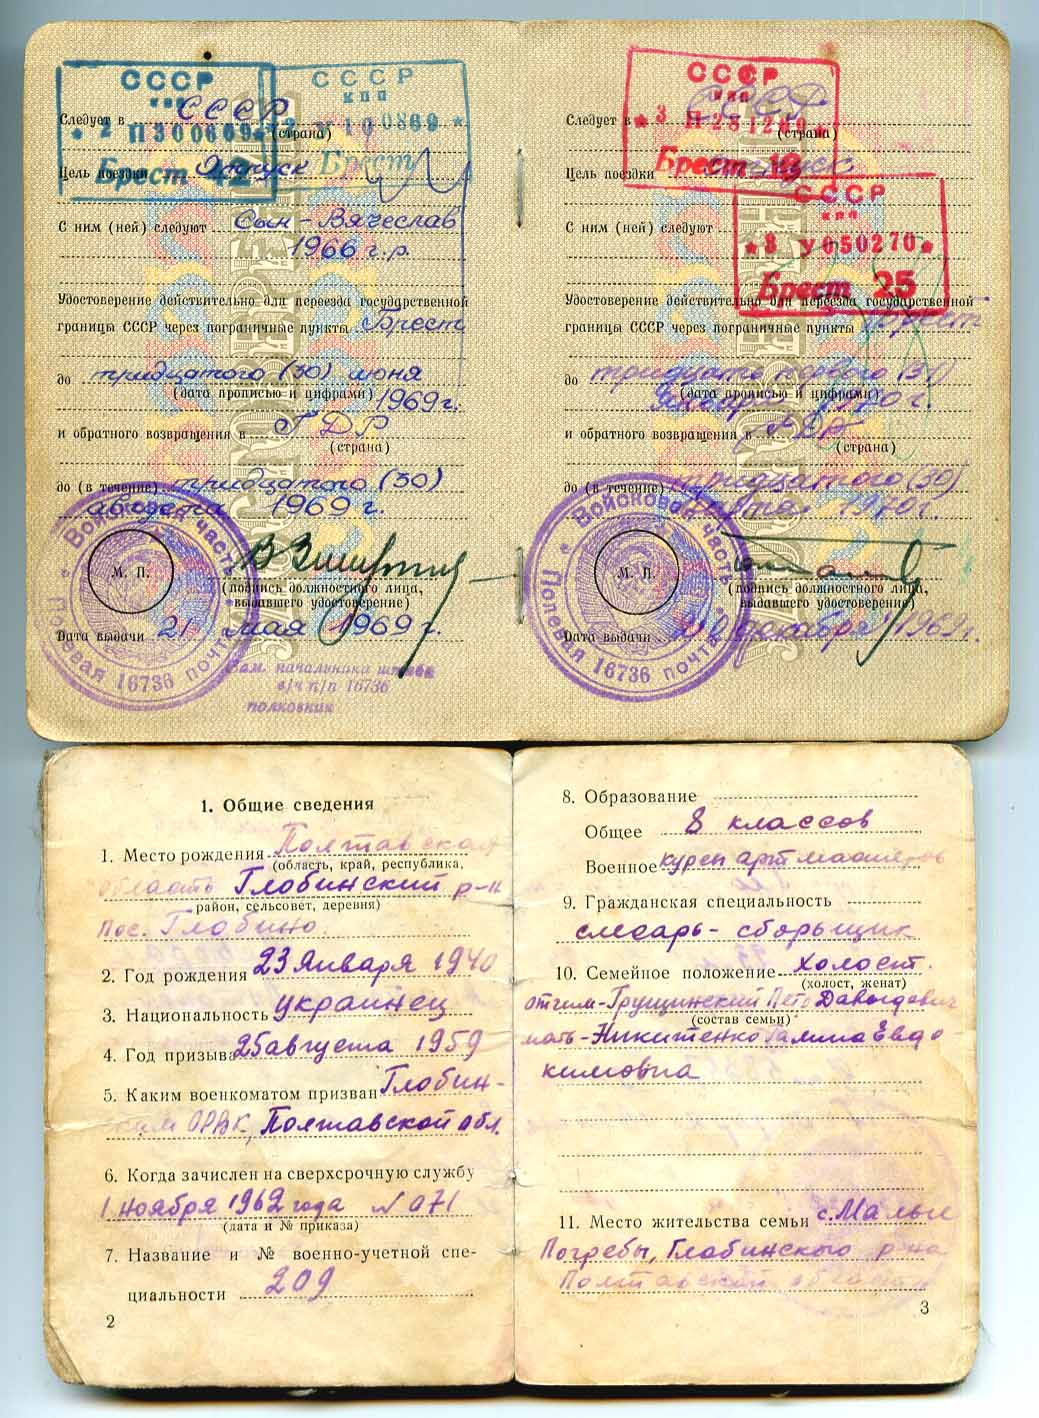 СССР
КПП
* 2 П 300669 *
Брест 42
СССР
КПП
У 100869 *
Брест
Следует в СССР
(страна)
Цель поездки Отпуск
С ним (ней) следуют Сын - Вячеслав
1966 г.р.
Удостоверение действительно для переезда государственной
границы СССР через пограничные пункты Брест
до тридцатого (30) июня
(дата прописью и цифрами) 1969г.
и обратного возвращения в ГДР
(страна)
до (в течение) тридцатого (30)
августа 1969 г.
М. П.
(подпись должностного лица,
выдавшего удостоверение)
Дата выдачи 21 мая 1969 г.
Войсковая часть
Полевая почта 16736
Зам. начальника штаба
в/ч п/п 16736
полковник
СССР
КПП
* 3 П 281269 *
Брест
СССР
КПП
* 8 У 050270 *
Брест 25
Следует в СССР
(страна)
Цель поездки отпуск
С ним (ней) следуют
Удостоверение действительно для переезда государственной
границы СССР через пограничные пункты Брест
до тридцать первого (31)
(дата прописью и цифрами)
января 1970г.
и обратного возвращения в ГДР
(страна)
до (в течение) тридцатого (30)
марта 1970г.
М. П.
(подпись должностного лица,
выдавшего удостоверение)
Дата выдачи декабря 1969г.
Войсковая часть
Полевая почта 16736
1. Общие сведения
1. Место рождения Полтавская
(область, край, республика,
область Глобинский р-н
район, сельсовет, деревня)
пос. Глобино
2. Год рождения 23 Января 1940
3. Национальность украинец
4. Год призыва 25 августа 1959
5. Каким военкоматом призван Глобин-
ским ОРВК, Полтавской обл.
6. Когда зачислен на сверхсрочную службу
1 ноября 1962 года №071
(дата и № приказа)
7. Название и № военно-учетной спе-
циальности 209
2
8. Образование
Общее 8 классов
Военное курсы арт мастеров
9. Гражданская специальность
слесарь - сборщик
10. Семейное положение Холост.
(холост, женат)
отчим - Грущинский Петр Давыдович
(состав семьи)
мать - Никитенко Галина Евдо
кимовна
11. Место жительства семьи с. Малые
Погребы, Глобинского р-на
Полтавской области
3